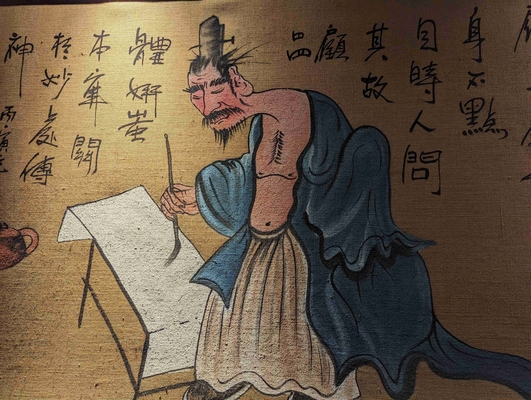 身不點
目時人問
其故
顧
品
體妍蚩
本關
於妙處傳
神
丙寅